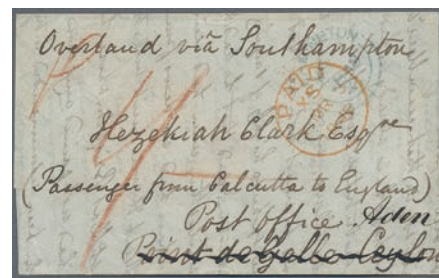 Overland viâ Southampton
PAID
Hezekiah Clark Esqre
(Passenger from Calcutta to England)
Post Office Aden
Point de Galle Ceylon